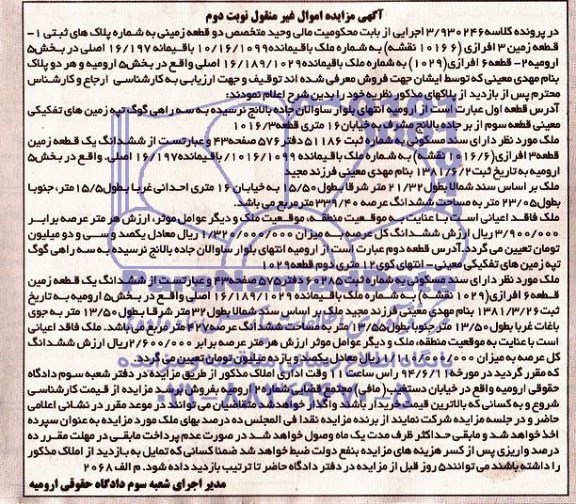 آگهی مزایده اموال غیر منقول نوبت دوم
در پرونده کلاسه ۳/۹۳۰۲۴۶ اجرایی از بابت محکومیت مالی وحید متخصص دو قطعه زمینی به شماره پلاک های ثبتی ۱-
قطعه زمین ۳ افرازی (۱۰۱۶/۶ نقشه) به شماره ملک باقیمانده ۱۰/۱۶/۱۰۹۹ باقیمانده ۱۶/۱۹۷ اصلی در بخش ۵
ارومیه ۲- قطعه ۶ افرازی (۱۰۲۹) به شماره ملک باقیمانده ۱۶/۱۸۹/۱۰۲۹ اصلی واقع در بخش ۵ ارومیه و هر دو پلاک
بنام مهدی معینی که توسط ایشان جهت فروش معرفی شده اند توقیف و جهت ارزیابی به کارشناسی ارجاع و کارشناس
محترم پس از بازدید از پلاکهای مذکور نظریه خود را بدین شرح اعلام نمودند:
آدرس قطعه اول عبارت است از ارومیه انتهای بلوار ساوالان جاده بالانج نرسیده به سه راهی گوگ تپه زمین های تفکیکی
معینی قطعه سوم از بر جاده بالانج مشرف به خیابان ۱۶ متری قطعه ۱۰۱۶/۳
ملک مورد نظر دارای سند مسکونی به شماره ثبت ۵۱۱۸۶ دفتر ۵۷۶ صفحه ۴۳ و عبارتست از ششدانگ یک قطعه زمین
قطعه ۳ افرازی (۱۰۱۶/۶ نقشه) به شماره ملک باقیمانده ۱۰۱۶/۱۰۹۹ باقیمانده ۱۶/۱۹۷ اصلی، واقع در بخش ۵
ارومیه به تاریخ ثبت ۱۳۸۱/۶/۲ بنام مهدی معینی فرزند مجید
ملک بر اساس سند شمالا بطول ۲۱/۳۲ متر شرقا بطول ۱۵/۵۰ به خیابان ۱۶ متری احداثی غربا بطول ۱۵/۵ متر، جنوبا
بطول ۲۳/۰۵ متر به مساحت ششدانگ عرصه ۳۳۹/۴۰ مترمربع می باشد.
ملک فاقد اعیانی است با عنایت به موقعیت منطقه، موقعیت ملک و دیگر عوامل موثر، ارزش هر متر عرصه برابر
۳/۹۰۰/۰۰۰ ریال ارزش ششدانگ کل عرصه به میزان ۱/۳۲۰/۰۰۰/۰۰۰ ریال معادل یکصد و سی و دو میلیون
تومان تعیین می گردد. آدرس قطعه دوم عبارت است از ارومیه انتهای بلوار ساوالان جاده بالانج نرسیده به سه راهی گوگ
تپه زمین های تفکیکی معینی- انتهای کوی ۱۲ متری دوم قطعه ۱۰۲۹
ملک مورد نظر دارای سند مسکونی به شماره ثبت ۶۰۲۸۵ دفتر ۵۷۵ صفحه ۴۳ و عبارتست از ششدانگ یک قطعه زمین
قطعه ۶ افرازی (۱۰۲۹ نقشه) به شماره ملک باقیمانده ۱۶/۱۸۹/۱۰۲۹ اصلی واقع در بخش ۵ ارومیه به تاریخ
ثبت ۱۳۸۱/۳/۲۶ بنام مهدی معینی فرزند مجید ملک بر اساس سند شمالا بطول ۳۲ متر شرقا بطول ۱۳/۵۰ متر به جوی
باغات غربا بطول ۱۳/۵۰ متر جنوبا بطول ۳۱/۵۰ متر به مساحت ششدانگ عرصه ۴۲۷ مترمربع می باشد. ملک فاقد اعیانی
است با عنایت به موقعیت منطقه، ملک و دیگر عوامل موثر ارزش هر متر عرصه برابر ۲/۶۰۰/۰۰۰ ریال ارزش ششدانگ
کل عرصه به میزان ۱/۱۱۰/۰۰۰/۰۰۰ ریال معادل یکصد و یازده میلیون تومان تعیین می گردد.
که مقرر گردید در مورخه ۹۴/۶/۱۴ راس ساعت ۱۱ وقت اداری املاک مذکور از طریق مزایده در دفتر شعبه سوم دادگاه
حقوقی ارومیه واقع در خیابان دستغیب (مافی) مجتمع قضایی شماره ۲ ارومیه بفروش برسد مزایده از قیمت کارشناسی
شروع و به کسانی که بالاترین قیمت خریدار باشد واگذار خواهد شد متقاضیان می توانند در موعد مقرر در نشانی اعلامی
حاضر و در جلسه مزایده شرکت نمایند از برنده مزایده نقدا فی المجلس ده درصد بهای ملک مورد مزایده به عنوان سپرده
اخذ خواهد شد و مابقی حداکثر ظرف مدت یک ماه وصول خواهد شد در صورت عدم پرداخت مابقی در مهلت مقرر ده
درصد واریزی پس از کسر هزینه های مزایده بنفع دولت ضبط خواهد شد ضمنا کسانی که تمایل به بازدید از املاک مذکور
را داشته باشند می توانند ۵ روز قبل از مزایده در دفتر دادگاه حاضر تا ترتیب بازدید داده شود. م الف ۲۰۶۸
مدیر اجرای شعبه سوم دادگاه حقوقی ارومیه
۰۲۱-۸۸۳۴۹۶۷۰-۵